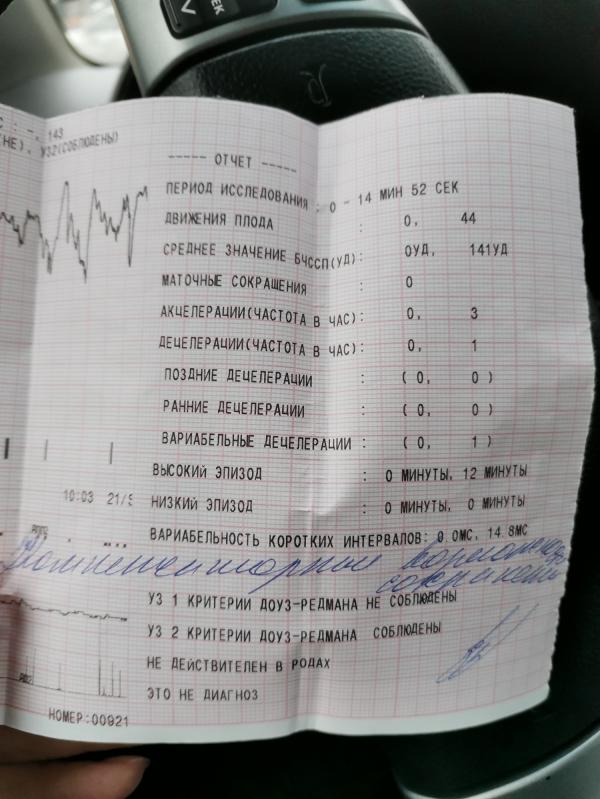 ЕК
С : -, 143
(НЕ), УЗ2(СОБЛЮДЕНЫ)
----- ОТЧЕТ -----
ПЕРИОД ИССЛЕДОВАНИЯ : 0 - 14 МИН 52 СЕК
ДВИЖЕНИЯ ПЛОДА : 0, 44
СРЕДНЕЕ ЗНАЧЕНИЕ БЧССП(УД): 0УД, 141УД
МАТОЧНЫЕ СОКРАЩЕНИЯ : 0
АКЦЕЛЕРАЦИИ(ЧАСТОТА В ЧАС): 0, 3
ДЕЦЕЛЕРАЦИИ(ЧАСТОТА В ЧАС): 0, 1
ПОЗДНИЕ ДЕЦЕЛЕРАЦИИ : ( 0, 0 )
РАННИЕ ДЕЦЕЛЕРАЦИИ : ( 0, 0 )
ВАРИАБЕЛЬНЫЕ ДЕЦЕЛЕРАЦИИ : ( 0, 1 )
ВЫСОКИЙ ЭПИЗОД : 0 МИНУТЫ, 12 МИНУТЫ
10:03 21/
НИЗКИЙ ЭПИЗОД : 0 МИНУТЫ, 0 МИНУТЫ
ВАРИАБЕЛЬНОСТЬ КОРОТКИХ ИНТЕРВАЛОВ: 0.0МС, 14.8МС
УЗ 1 КРИТЕРИИ ДОУЗ-РЕДМАНА НЕ СОБЛЮДЕНЫ
УЗ 2 КРИТЕРИИ ДОУЗ-РЕДМАНА СОБЛЮДЕНЫ
НЕ ДЕЙСТВИТЕЛЕН В РОДАХ
ЭТО НЕ ДИАГНОЗ
НОМЕР:00921